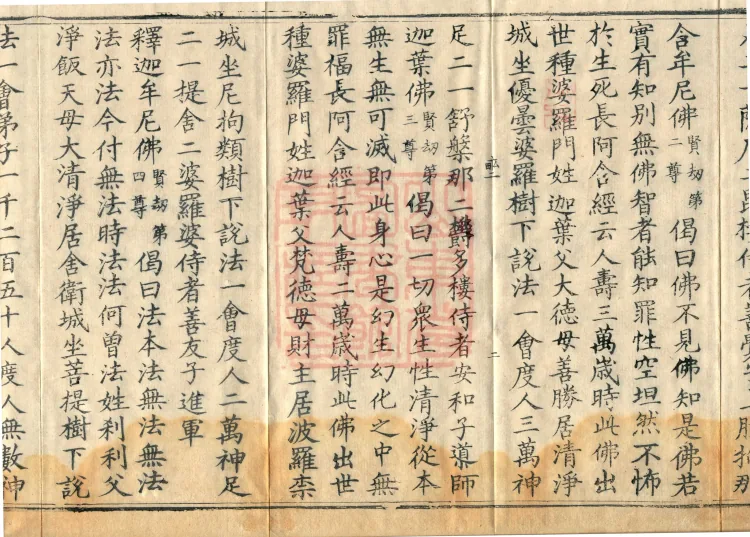 含牟尼佛賢劫第二尊偈曰佛不見佛知是佛若
實有知別無佛智者能知罪性空坦然不怖
於生死長阿含經云人壽三萬歲時此佛出
世種婆羅門姓迦葉父大德母善勝居清淨
城坐優曇婆羅樹下說法一會度人三萬神
足二一舒槃那二欝多樓侍者安和子導師
迦葉佛賢劫第三尊偈曰一切衆生性清淨從本
無生無可滅即此身心是幻生幻化之中無
罪福長阿含經云人壽二萬歲時此佛出世
種婆羅門姓迦葉父梵德母財主居波羅柰
城坐尼拘類樹下說法一會度人二萬神足
二一提舍二婆羅婆侍者善友子進軍
釋迦牟尼佛賢劫第四尊偈曰法本法無法無法
法亦法今付無法時法法何曾法姓刹利父
淨飯天母大清淨居舍衛城坐菩提樹下說
法一會弟子一千二百五十人度人無數神